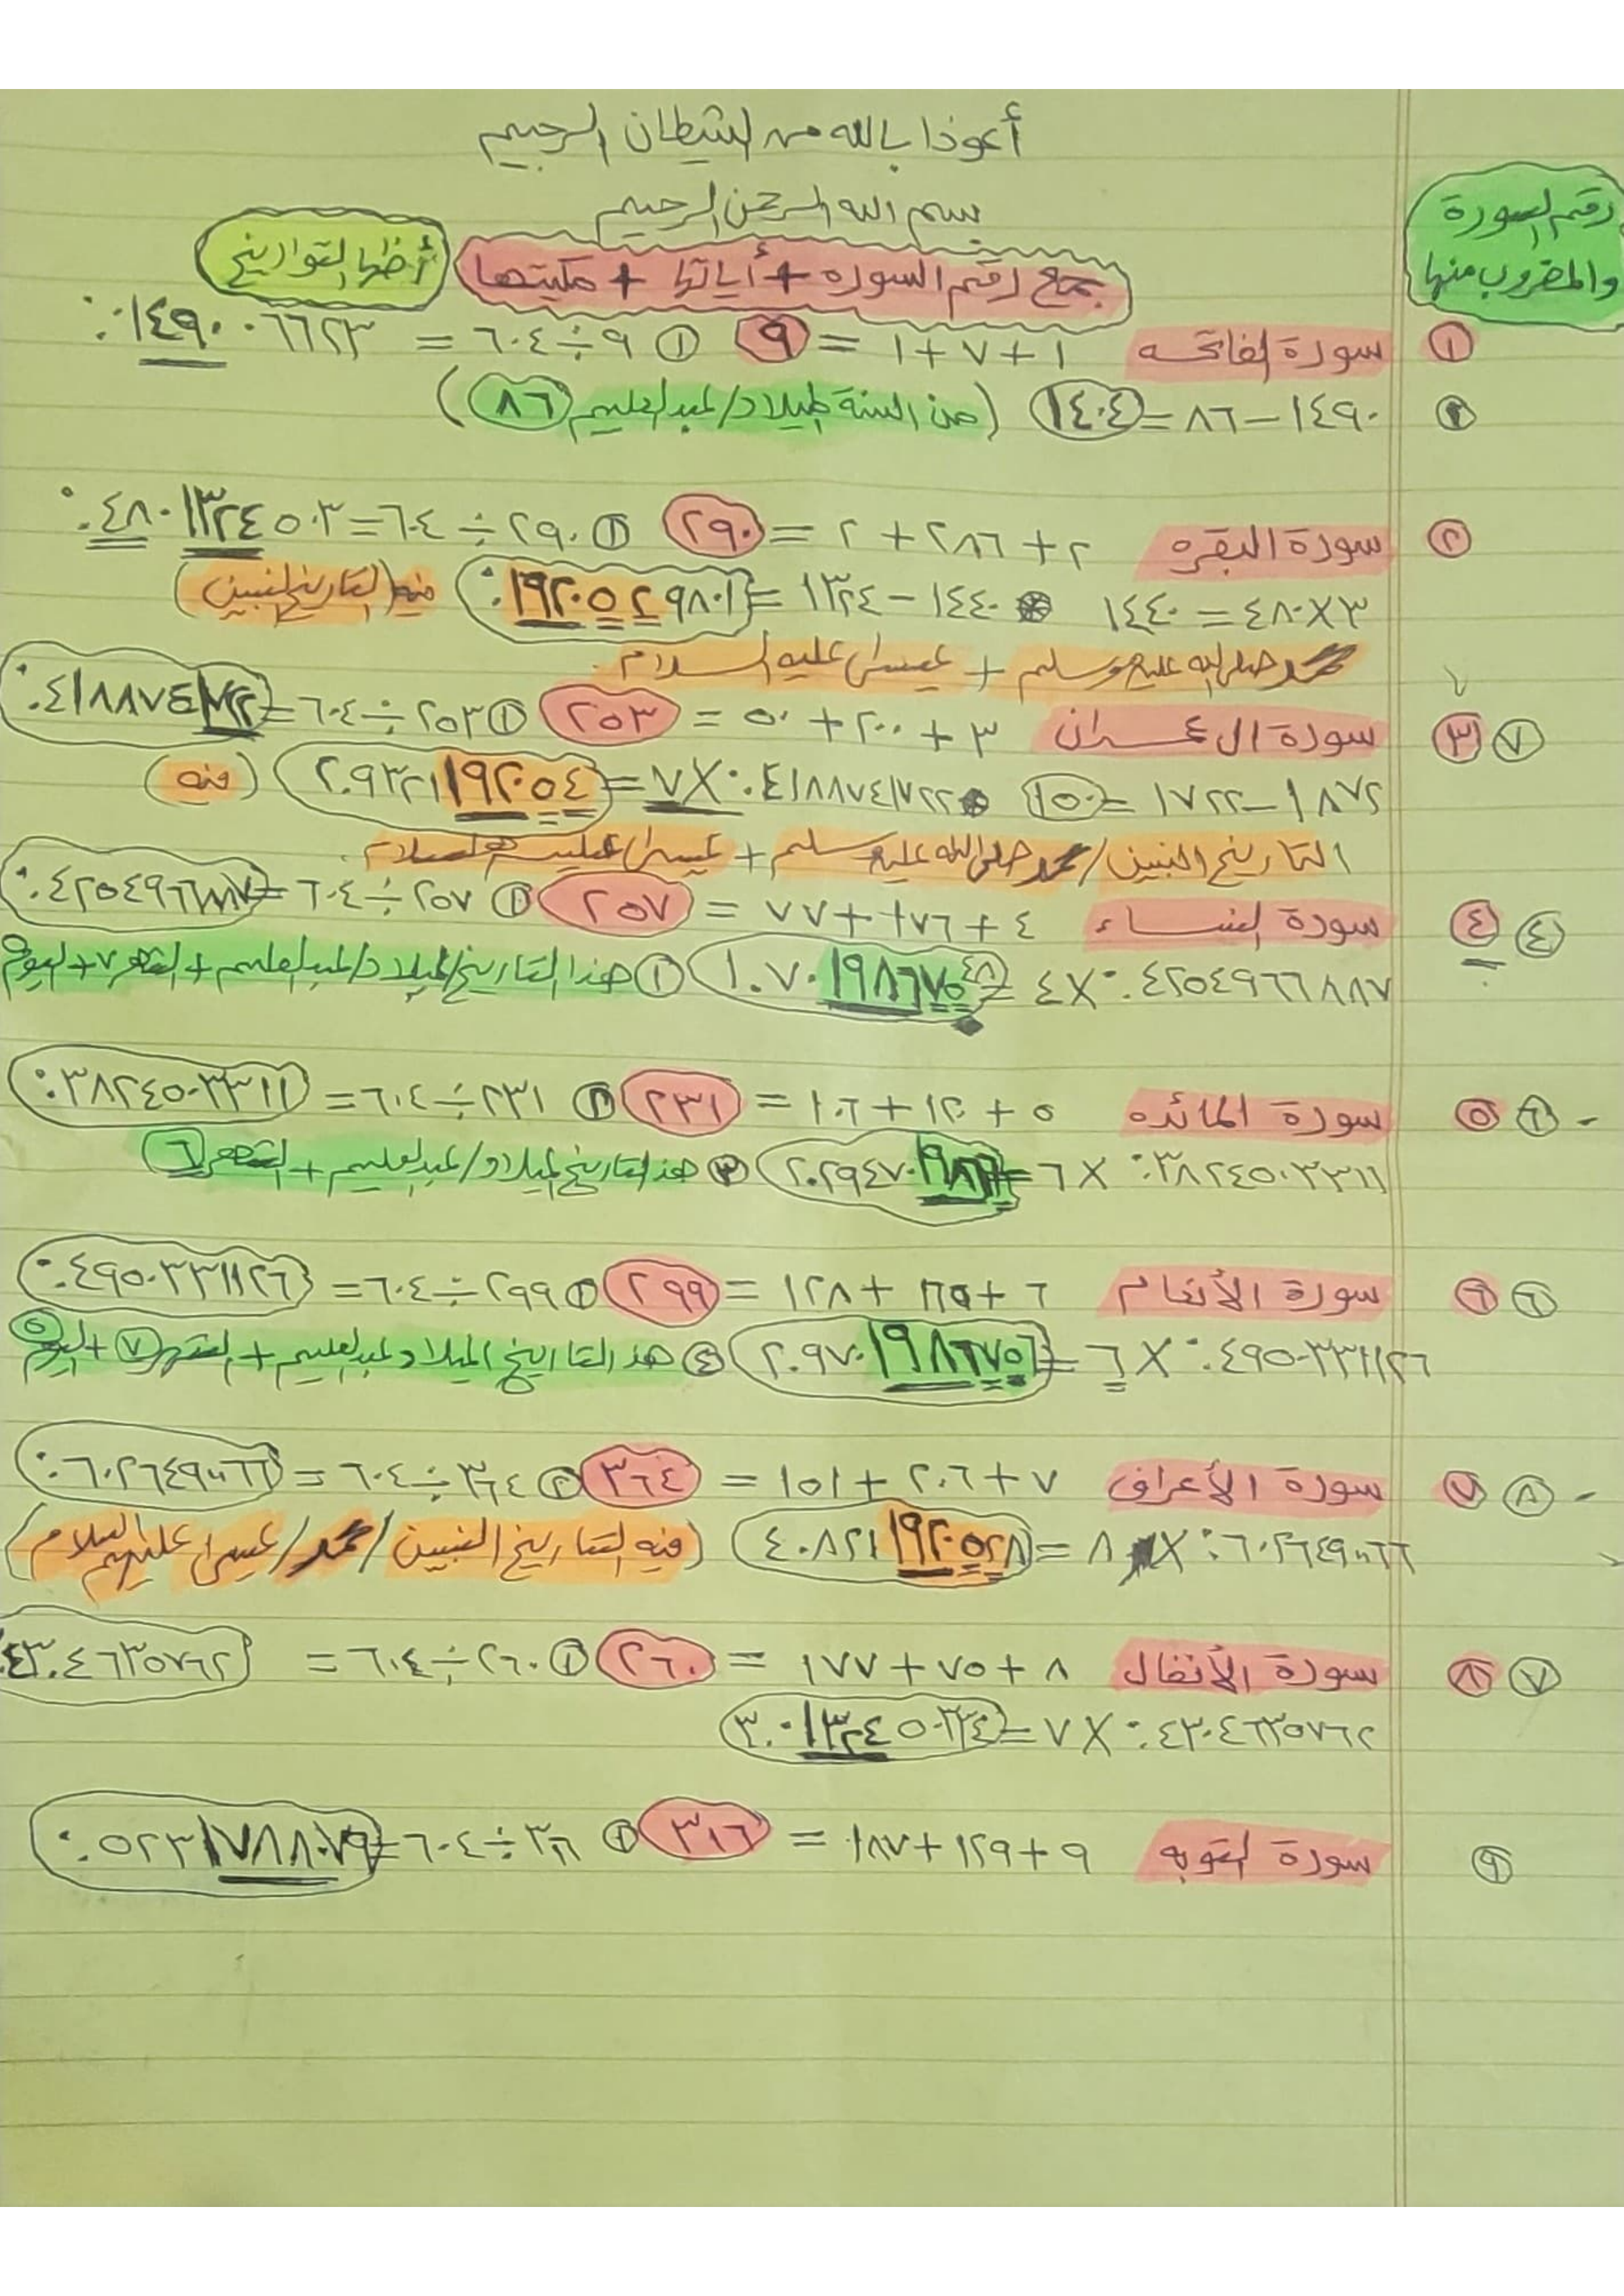 أعوذا بالله من الشيطان الرجيم
بسم الله الرحمن الرحيم
رقم السورة والمضروب منها
جمع رقم السوره + أياتها + مكيتها أظهار التواريخ
١ سورة الفاتحه ١+٧+١ = ٩ ١ ٩÷٦٠٤ = ٠١٤٩٠٠٦٦٢٣.
٢ ١٤٩٠−٨٦=١٤٠٤ (من السنة لميلاد/عبدالعليم ٨٦)
٢ سورة البقره ٢+٢٨٦+٢ = ٢٩٠ ١ ٢٩٠÷٦٠٤=٤٨٠١٣٢٤٥٠٣.
٣×٤٨٠=١٤٤٠ ١٤٤٠−١٣٢٤= ١٩٢٠٥٢٩٨٠١. فيه (التاريخ النبيين)
محمد صلى الله عليه وسلم + عيسى عليه السلام
٧ ٣ سورة ال عمران ٣+٢٠٠+٥٠ = ٢٥٣ ١ ٢٥٣÷٦٠٤=٤١٨٨٧٤١٧٢٢.
١٨٧٢−١٧٢٢=١٥٠ ٤١٨٨٧٤١٧٢٢.×٧=٢.٩٣٢١١٩٢٠٥٤ (فيه)
التاريخ النبيين/محمد صلى الله عليه وسلم + عيسى عليهم السلام
٤ ٤ سورة النساء ٤+١٧٦+٧٧ = ٢٥٧ ١ ٢٥٧÷٦٠٤=٤٢٥٤٩٦٦٨٨٧.
٤٢٥٤٩٦٦٨٨٧.×٤=١.٧٠١٩٨٦٧٥٤٨ ١ هذا التاريخ لميلاد/عبدالعليم + الشهر ٧ + اليوم ٥
٦ ٥ سورة المائده ٥+١٢٠+١٠٦ = ٢٣١ ٢ ٢٣١÷٦٠٤=٣٨٢٤٥٠٣٣١١.
٣٨٢٤٥٠٣٣١١.×٦=٢.٢٩٤٧٠١٩٨٦٦ ٣ هذا التاريخ لميلاد/عبدالعليم + الشهر ٦
٦ ٦ سورة الأنعام ٦+١٦٥+١٢٨ = ٢٩٩ ١ ٢٩٩÷٦٠٤=٤٩٥٠٣٣١١٢٦.
٤٩٥٠٣٣١١٢٦.×٦=٢.٩٧٠١٩٨٦٧٥٦ ٤ هذا التاريخ الميلاد عبدالعليم + الشهر ٧ + اليوم ٥
٨ ٧ سورة الأعراف ٧+٢٠٦+١٥١ = ٣٦٤ ٢ ٣٦٤÷٦٠٤=٦٠٢٦٤٩٠٠٦٦.
٦٠٢٦٤٩٠٠٦٦.×٨=٤.٨٢١١٩٢٠٥٢٨ (فيه التاريخ النبيين/محمد/عيسى عليهم السلام)
٧ ٨ سورة الأنفال ٨+٧٥+١٧٧ = ٢٦٠ ١ ٢٦٠÷٦٠٤=٤٣٠٤٦٣٥٧٦٢.
٤٣٠٤٦٣٥٧٦٢.×٧=٣.٠١٣٢٤٥٠٣٣٤
٩ سورة التوبه ٩+١٢٩+١٨٧ = ٣١٦ ١ ٣١٦÷٦٠٤=٥٢٣١٧٨٨٠٧٩.